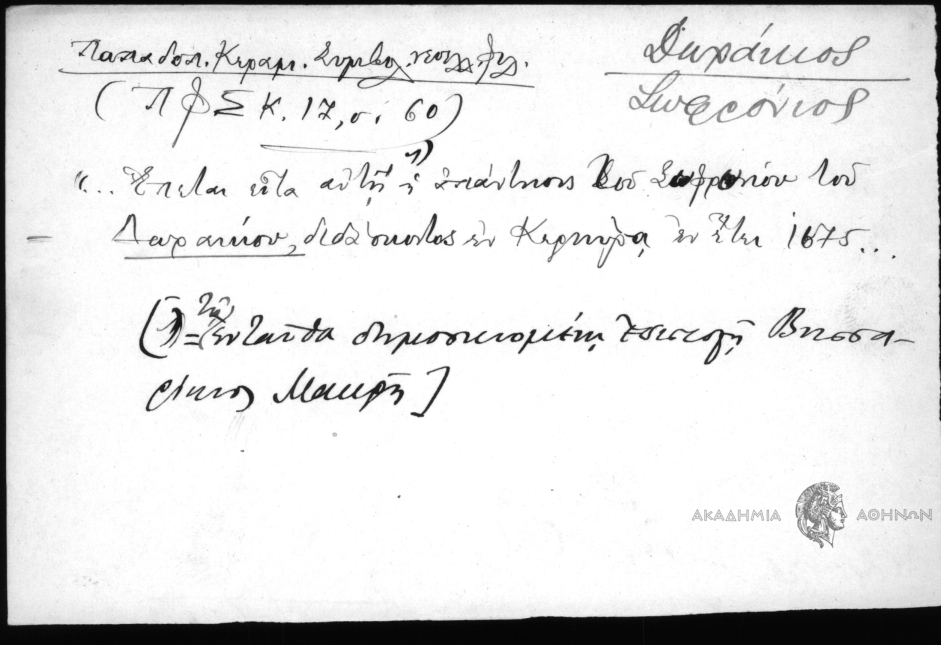 Παπαδοπ. Κεραμ. Συμβολ. νεοελλ. φιλ.
(ΠΦΣΚ. 17, σ. 60)
Δωράικος
Σωφρόνιος
"... Ἕπεται εἶτα αὐτῇ 1) ἡ ἀπάντησις τοῦ Σωφρονίου τοῦ
— Δωραικου, διδάσκοντος ἐν Κερκύρᾳ ἐν ἔτει 1675...
(1) = τῇ ἐνταῦθα δημοσιευομένῃ ἐπιστολῇ Βησσα-
ρίωνος Μακρῆ]
ΑΚΑΔΗΜΙΑ ΑΘΗΝΩΝ